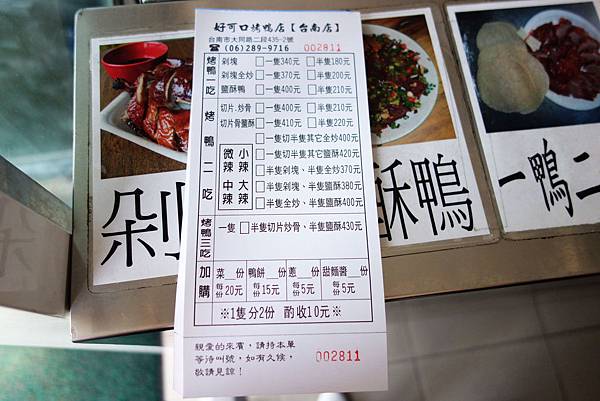 好可口烤鴨店【台南店】
台南市大同路二段435-2號
☎ (06)289-9716 002811
烤鴨一吃
剁塊 □一隻340元 □半隻180元
剁塊全炒 □一隻370元 □半隻200元
鹽酥鴨 □一隻400元 □半隻210元
烤鴨二吃
切片.炒骨 □一隻400元 □半隻210元
切片骨鹽酥 □一隻410元 □半隻220元
微辣 小辣 中辣 大辣
□一隻切半隻其它全炒400元
□一隻切半隻其它鹽酥420元
□半隻剁塊、半隻全炒370元
□半隻剁塊、半隻鹽酥380元
□半隻全炒、半隻鹽酥400元
烤鴨三吃
一隻 □半隻切片炒骨、半隻鹽酥430元
加購
菜__份 鴨餅__份 蔥__份 甜麵醬__份
每份20元 每份15元 每份5元 每份5元
※1隻分2份 酌收10元※
親愛的來賓,請持本單
等待叫號,如有久候,
敬請見諒! 002811
剁
酥鴨
一鴨二